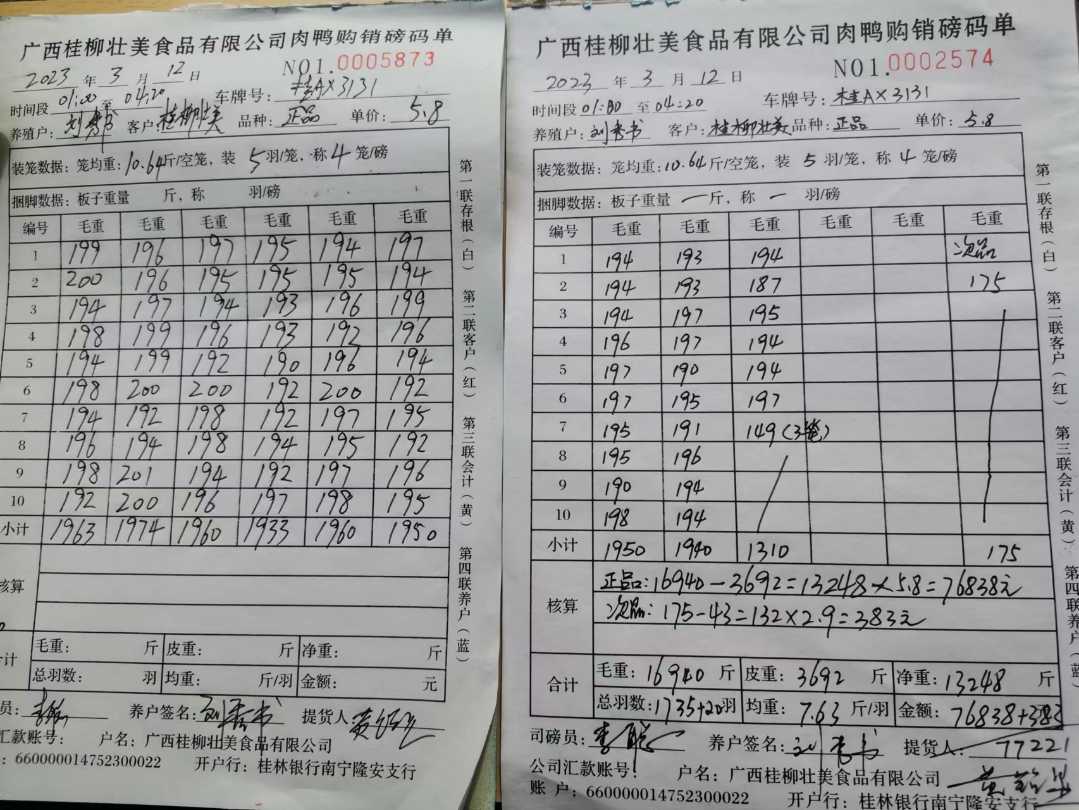 广西桂柳壮美食品有限公司肉鸭购销磅码单
2023 年 3 月 12 日 NO1.0005873
时间段 01:00 至 04:20 车牌号: 桂AX3131
养殖户: 刘秀书 客户: 桂柳壮美 品种: 正品 单价: 5.8
装笼数据: 笼均重: 10.64斤/空笼, 装 5 羽/笼, 称 4 笼/磅
捆脚数据: 板子重量 斤, 称 羽/磅
编号 毛重 毛重 毛重 毛重 毛重 毛重
1 199 196 197 195 194 197
2 200 196 195 195 195 194
3 194 197 194 193 196 199
4 198 199 196 193 192 196
5 194 199 192 190 196 194
6 198 200 200 192 200 192
7 194 192 198 192 197 195
8 196 194 198 194 195 192
9 198 201 194 192 197 196
10 192 200 196 197 198 195
小计 1963 1974 1960 1933 1960 1950
核算
毛重: 斤 皮重: 斤 净重: 斤
计
总羽数: 羽 均重: 斤/羽 金额: 元
员: 养户签名: 刘秀书 提货人
汇款账号: 户名: 广西桂柳壮美食品有限公司
: 660000014752300022 开户行: 桂林银行南宁隆安支行
第一联存根(白) 第二联客户(红) 第三联会计(黄) 第四联养户(蓝)
广西桂柳壮美食品有限公司肉鸭购销磅码单
2023 年 3 月 12 日 NO1.0002574
时间段 01:00 至 04:20 车牌号: 桂AX3131
养殖户: 刘秀书 客户: 桂柳壮美 品种: 正品 单价: 5.8
装笼数据: 笼均重: 10.64斤/空笼, 装 5 羽/笼, 称 4 笼/磅
捆脚数据: 板子重量 一 斤, 称 一 羽/磅
编号 毛重 毛重 毛重 毛重 毛重 毛重
1 194 193 194 次品
2 194 193 187 175
3 194 197 195
4 196 197 194
5 197 190 194
6 197 195 197
7 195 191 149(3笼)
8 195 196
9 190 194
10 198 194
小计 1950 1940 1310 175
正品: 16940-3692=13248×5.8=76838元
核算
次品: 175-43=132×2.9=383元
毛重: 16940 斤 皮重: 3692 斤 净重: 13248 斤
合计
总羽数: 1735+20羽 均重: 7.63 斤/羽 金额: 76838+383
司磅员: 养户签名: 刘秀书 提货人: 77221
公司汇款账号: 户名: 广西桂柳壮美食品有限公司
账 户: 660000014752300022 开户行: 桂林银行南宁隆安支行
第一联存根(白) 第二联客户(红) 第三联会计(黄) 第四联养户(蓝)